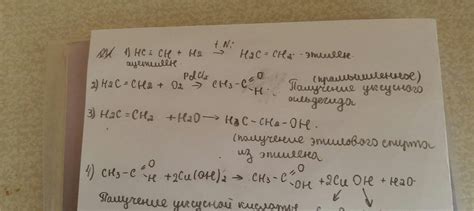 t, Ni
1) HC≡CH + H2 → H2C=CH2 - этилен
ацетилен
PdCl2
2) H2C=CH2 + O2 → CH3-C=O H (промышленное)
Получение уксусного
альдегида
3) H2C=CH2 + H2O → H3C-CH2-OH.
(получение этилового спирта
из этилена
4) CH3-C=O H + 2Cu(OH)2 → CH3-C=O OH + 2CuOH + H2O
Получение уксусной кислоты